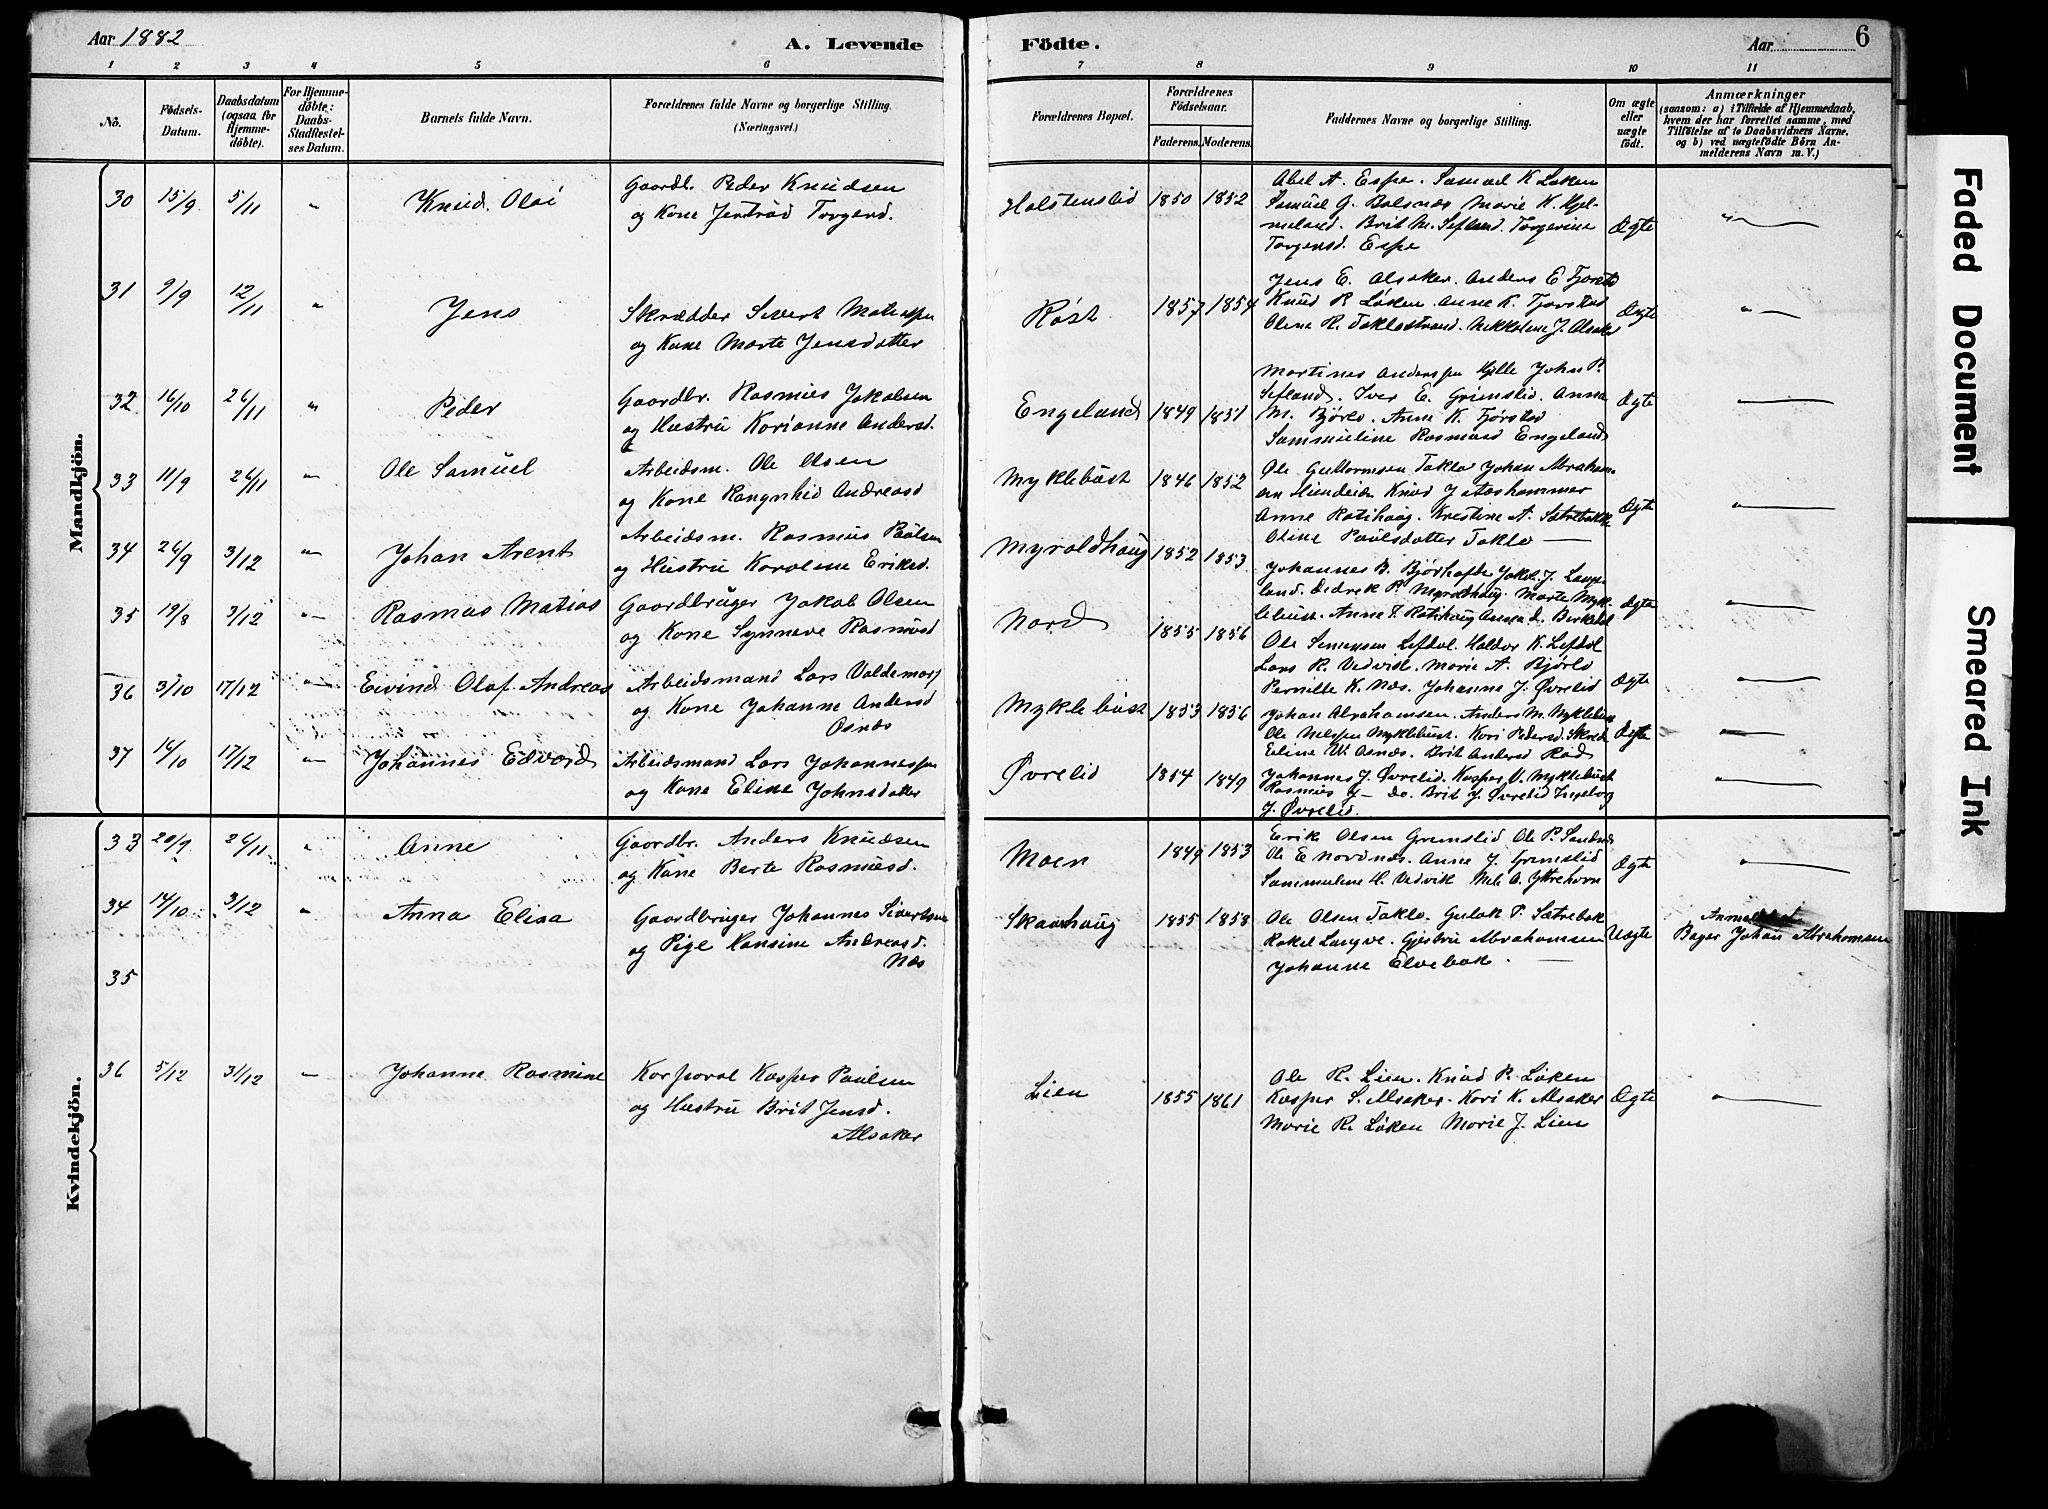 Aar 1882
A. Levende
Födte.
Aar
6
1 2 3 4 5 6 7 8 9 10 11
No.
Födsels-
Datum.
Daabsdatum
(ogsaa for
Hjemme-
döbte).
For Hjemme-
döbte:
Daabs-
Stadfæstel-
ses Datum.
Barnets fulde Navn.
Forældrenes fulde Navne og borgerlige Stilling.
(Næringsvei.)
Forældrenes Bopæl.
Forældrenes
Födselsaar.
Faderens. Moderens.
Faddernes Navne og borgerlige Stilling.
Om ægte
eller
uægte
födt.
Anmærkninger
(saasom: a) i Tilfælde af Hjemmedaab,
hvem der har forrettet samme, med
Tilföielse af to Daabsvidners Navne,
og b) ved uægtefödte Börn An-
melderens Navn m. V.)
Mandkjön.
30 15/9 5/11 " Knud Oloi
Gaardb. Peder Knudsen
og Kone Jertrød Torgersd.
Holstenslid 1850 1852
Abel A. Espe. Samuel K Løken
Samuel G. Bolsnæs Marie K. Hjel-
meland. Brit M. Sefland. Torgerine
Torgersd. Espe
Ægte
31 9/9 12/11 " Jens
Skrædder Sivert Matiassen
og Kone Marte Jensdatter
Røst 1857 1854
Jens E. Alsaker. Anders E Tjorsta
Knud R. Løken. Anne K. Tjorstad
Oline R. Taklostrand. Nikkoline J. Alsaker
Ægte
32 16/10 26/11 " Peder
Gaardbr. Rasmus Jakobsen
og Hustru Korianne Andersd.
Engeland 1849 1851
Martines Anderssen Hjelle John P.
Sefland. Iver E. Grimslid. Anna
M. Bjørlo. Anne K. Tjørstad
Sammueline Rasmusd Engeland
Ægte
33 11/9 26/11 " Ole Samuel
Arbeidsm. Ole Olsen
og Kone Rangnhild Andreasd
Myklebust 1846 1852
Ole Guttormsen Taklo Johan Abraham-
sen Hundeide Knud J Aashammer
Anne Rotihaug. Kristine A. Sætrebakk
Oline Paulsdatter Taklo
Ægte
34 26/9 3/12 " Johan Arent
Arbeidsm. Rasmus Paulsen
og Hustru Karoline Eriksd.
Myroldhaug 1852 1853
Johannes B. Bjørhofde Jakob J. Lange-
land. Didrek P. Myroldhaug. Marte Myk-
lebust. Anna T. Rotihaug Anna D. Birkedal
Ægte
35 19/8 3/12 " Rasmus Matias
Gaardbruger Jakob Olsen
og Kone Synneve Rasmusd
Nord 1855 1856
Ole Simensen Lefdal. Haldor K. Lefdal
Lars R. Vedvik. Marie A. Bjørlo
Pernille K. Næs. Johanne J. Øvrelid
Ægte
36 3/10 17/12 " Eivind Olaf Andreas
Arbeidsmand Lars Valdemars
og Kone Johanne Andersd
Osnæs
Myklebust 1853 1856
Johan Abrahamsen. Anders M. Myklebust
Ole Nilssen Myklebust. Kari Pedersd. Skrede
Eline W. Osnæs. Brit Andersd Rød
Ægte
37 14/10 17/12 " Johannes Edvard
Arbeidsmand Lars Johannessen
og Kone Eline Johnsdatter
Øvrelid 1854 1849
Johannes J. Øvrelid. Kasper V. Myklebust
Rasmus — Do. Brit J. Øvrelid Ingeborg
J. Øvrelid.
Kvindekjön.
33 20/9 26/11 " Anne
Gaardbr. Anders Knudsen
og Kone Berte Rasmusd.
Moen 1849 1853
Eerik Olsen Grimslid Ole P. Sandnes
Ole E Nordnæs. Anne J. Grimslid
Sammueline H. Vedvik Mel. A. Yttrehorn
Ægte
34 14/10 3/12 " Anna Elisa
Gaardbruger Johannes Sivertsen
og Pige Hansine Andreasd.
Næs
Skaarhaug 1855 1858
Ole Olsen Taklo. Gulak P. Sætrebak
Rakel Langve. Gjertrud Abrahamsen
Johanne Elvebak.
Uægte
Anmeldt
Bager Johan Abrahamsen
35
36 5/12 31/12 — Johanne Rasmine
Korporal Kasper Paulsen
og Hustru Brit Jensd.
Alsaker
Lien 1855 1861
Ole R. Lien. Knud R. Løken
Kasper S. Alsaker. Kari K. Alsaker
Marie R. Løken Marie J. Lien
Ægte
Faded Document
Smeared Ink